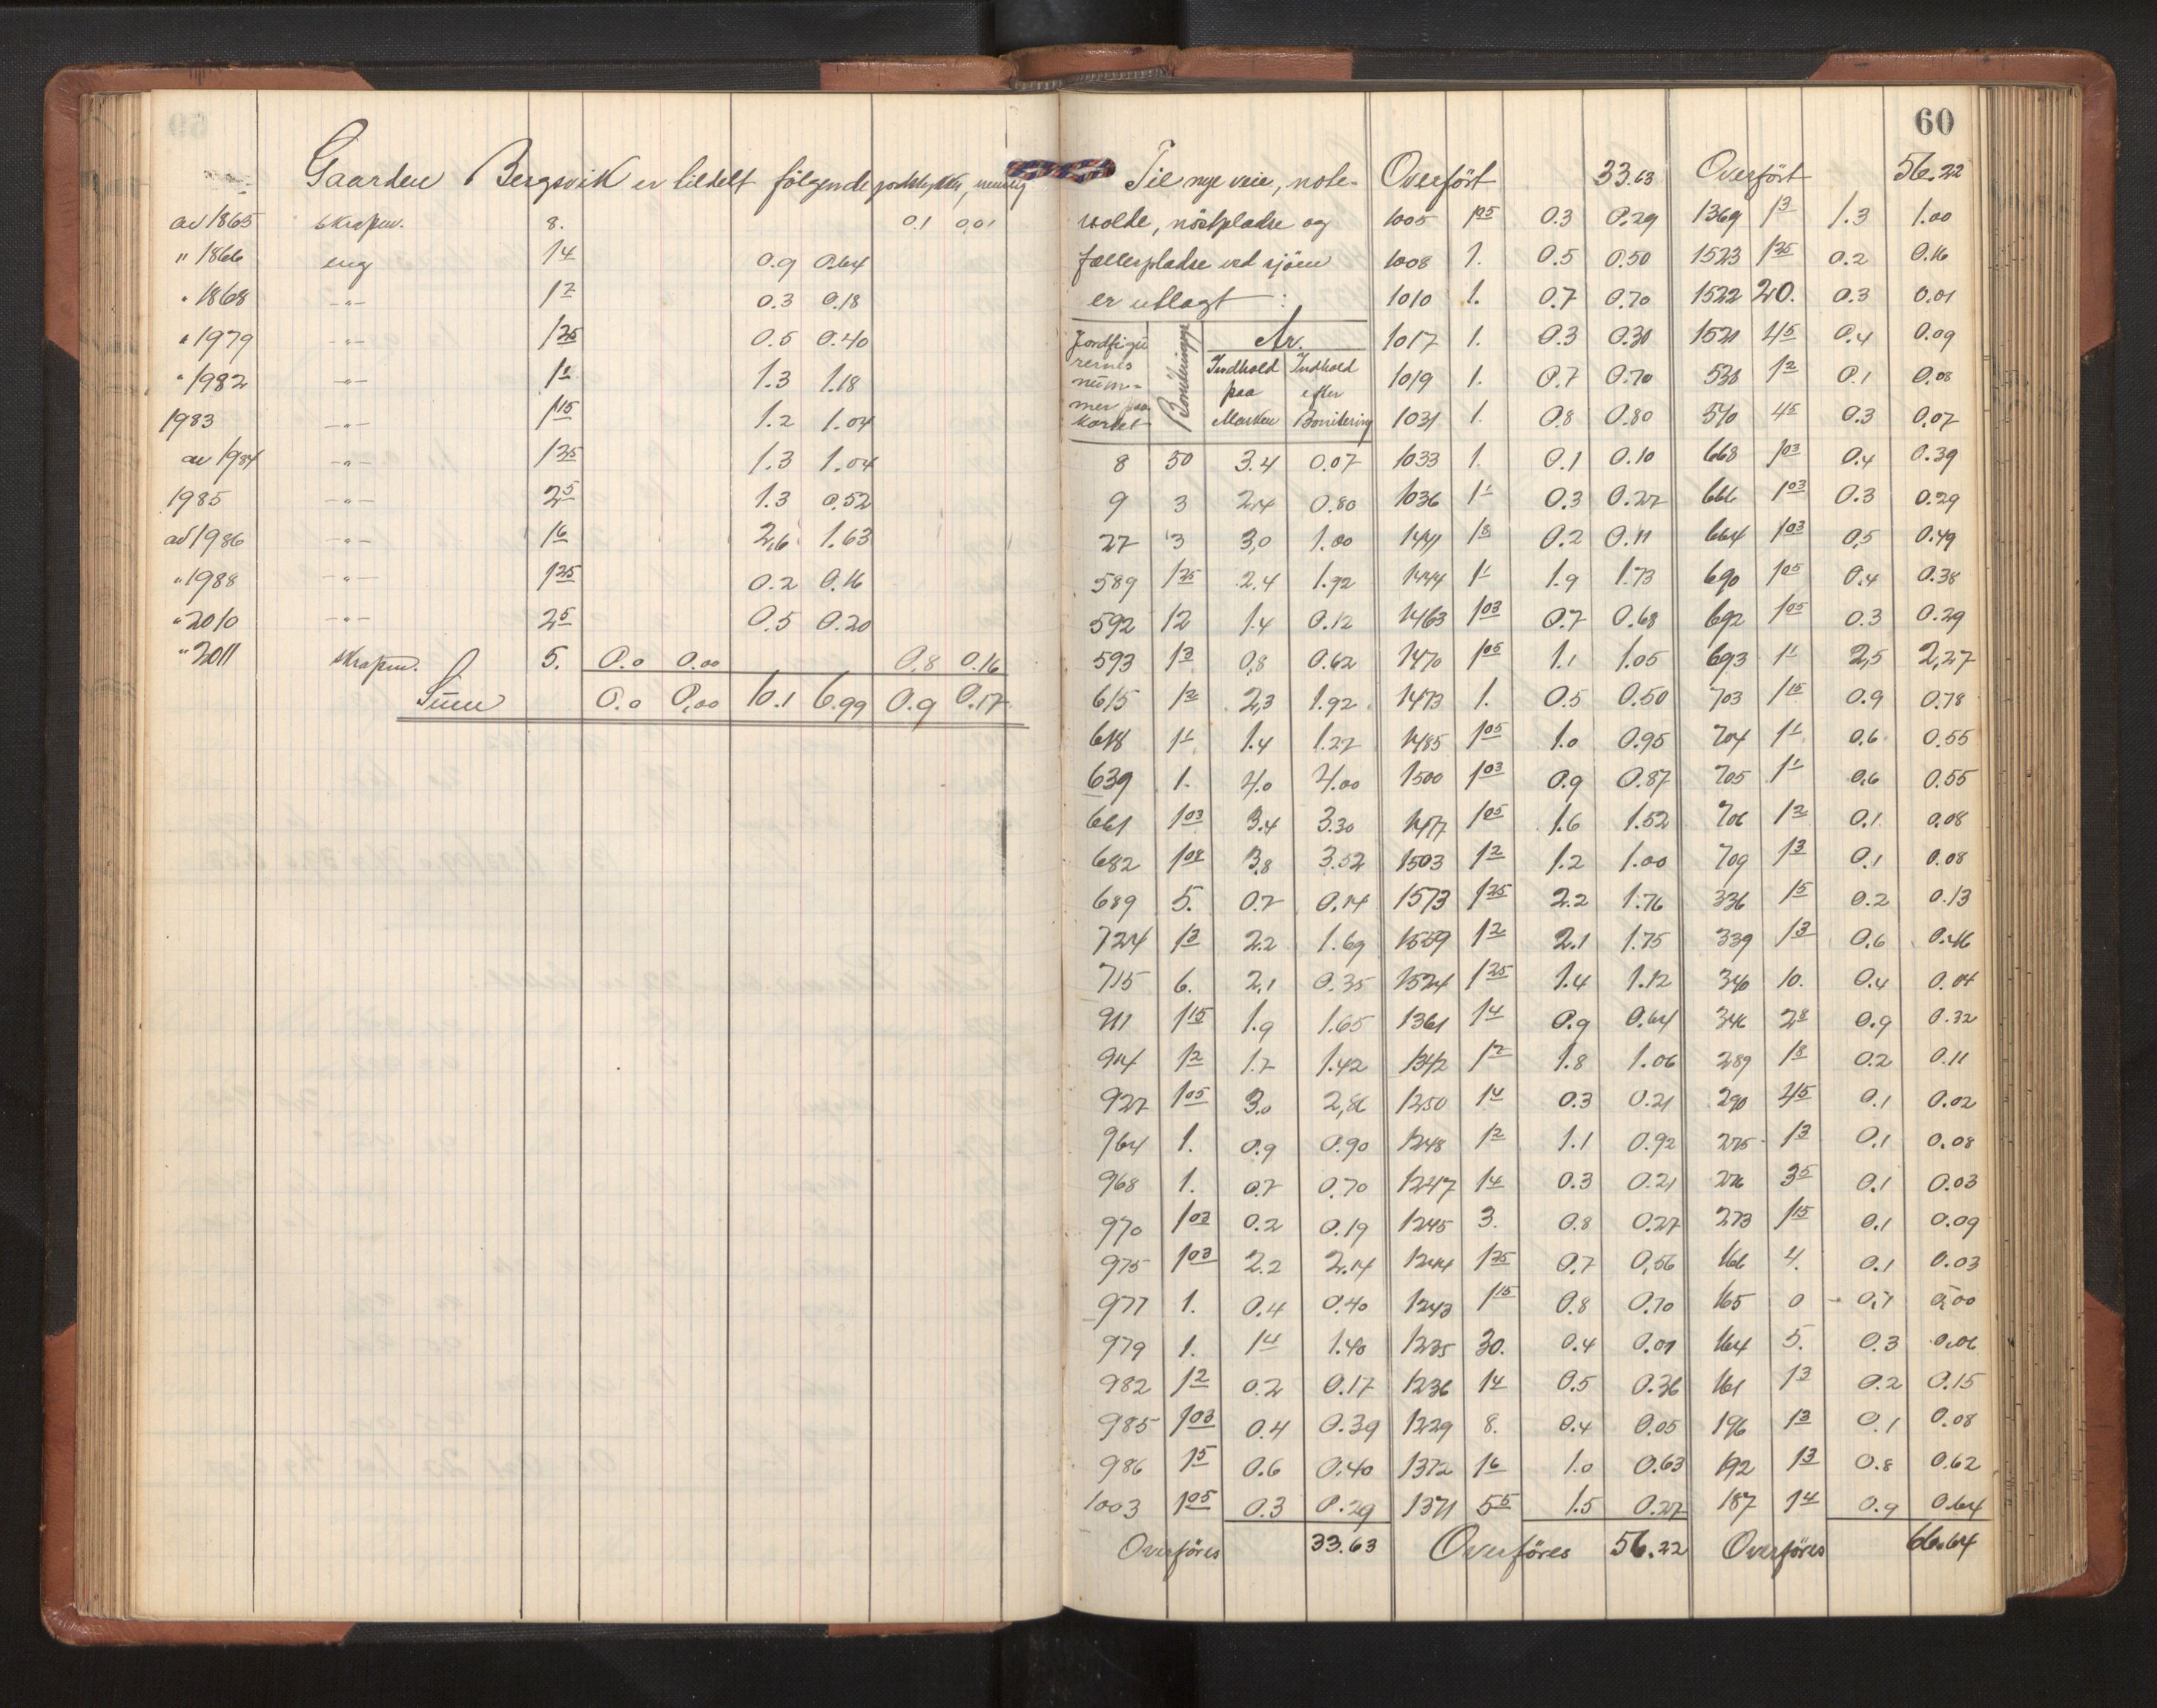 Gaarden Bergsvik er tildelt følgende jordstykke, nemlig
av 1865 skrapm. 8. 0.1 0,01
" 1866 eng 1.4 0.9 0.64
" 1868 -"- 1.7 0.3 0.18
" 1979 -"- 1.25 0.5 0.40
" 1982 -"- 1.1 1.3 1.18
1983 -"- 1.15 1.2 1.04
av 1984 -"- 1.25 1.3 1.04
1985 -"- 2.5 1.3 0.52
av 1986 -"- 1.6 2,6 1.63
" 1988 -"- 1.25 0.2 0.16
" 2010 -"- 2.5 0.5 0.20
" 2011 skrapm. 5. 0.0 0.00 0,8 0.16
Sum 0.0 0,00 10.1 6.99 0.9 0.17
60
Til nye veie, note- Overført 33.63 Overført 56.22
volte, nöstpladse og 1005 1.05 0.3 0.29 1369 1.3 1.3 1.00
fællespladse ved sjöen 1008 1. 0.5 0.50 1523 1.25 0.2 0.16
er utlagt : 1010 1. 0.7 0.70 1522 20. 0.3 0.01
Jordfigurernes nummer paa kartet Boniteringgr. Ar. Indhold paa Marken Indhold efter Bonitering
1017 1. 0.3 0.30 1521 4.5 0.4 0.09
1019 1. 0.7 0.70 538 1.2 0.1 0.08
1031 1. 0.8 0.80 540 4.5 0.3 0.07
8 50 3.4 0.07 1033 1. 0.1 0.10 668 1.03 0.4 0.39
9 3 2.4 0.80 1036 1.1 0.3 0.27 666 1.03 0.3 0.29
27 3 3,0 1.00 1441 1.8 0.2 0.11 664 1.03 0.5 0.49
589 1.25 2.4 1.92 1444 1.1 1.9 1.73 690 1.05 0.4 0.38
592 12 1.4 0.12 1463 1.03 0.7 0.68 692 1.05 0.3 0.29
593 1.3 0,8 0.62 1470 1.05 1.1 1.05 693 1.1 2,5 2,27
615 1.2 2,3 1.92 1473 1. 0.5 0.50 703 1.15 0.9 0.78
618 1.1 1.4 1.27 1485 1.05 1.0 0.95 704 1.1 0.6 0.55
639 1. 4.0 4.00 1500 1.03 0.9 0.87 705 1.1 0.6 0.55
661 1.03 3.4 3.30 1477 1.05 1.6 1.52 706 1.2 0.1 0.08
682 1.08 3.8 3.52 1503 1.2 1.2 1.00 709 1.3 0.1 0.08
689 5. 0.7 0.14 1573 1.25 2.2 1.76 336 1.5 0.2 0.13
724 1.3 2.2 1.69 1559 1.2 2.1 1.75 339 1.3 0.6 0.46
715 6. 2,1 0.35 1524 1.25 1.4 1.12 340 10. 0.4 0.04
911 1.15 1.9 1.65 1361 1.4 0.9 0.64 346 2.8 0.9 0.32
914 1.2 1.7 1.42 1342 1.7 1.8 1.06 289 1.8 0.2 0.11
927 1.05 3.0 2,86 1250 1.4 0.3 0.21 290 4.5 0.1 0.02
964 1. 0.9 0.90 1248 1.2 1.1 0.92 275 1.3 0.1 0.08
968 1. 0.7 0.70 1247 1.4 0.3 0.21 276 3.5 0.1 0.03
970 1.03 0.2 0.19 1245 3. 0.8 0.27 273 1.15 0.1 0.09
975 1.03 2.2 2.14 1244 1.25 0.7 0,56 166 4. 0.1 0.03
977 1. 0.4 0.40 1243 1.15 0.8 0.70 165 0 0,7 0,00
979 1. 1.4 1.40 1235 30. 0.4 0.01 164 5. 0.3 0.06
982 1.2 0.2 0.17 1236 1.4 0.5 0.36 161 1.3 0.2 0.15
985 1.03 0.4 0.39 1229 8. 0.4 0.05 196 1.3 0.1 0.08
986 1.5 0.6 0.40 1372 1.6 1.0 0.63 192 1.3 0.8 0.62
1003 1.05 0.3 0.29 1371 5.5 1.5 0.27 187 1.4 0.9 0.64
Overføres 33.63 Overføres 56.22 Overføres 66.64